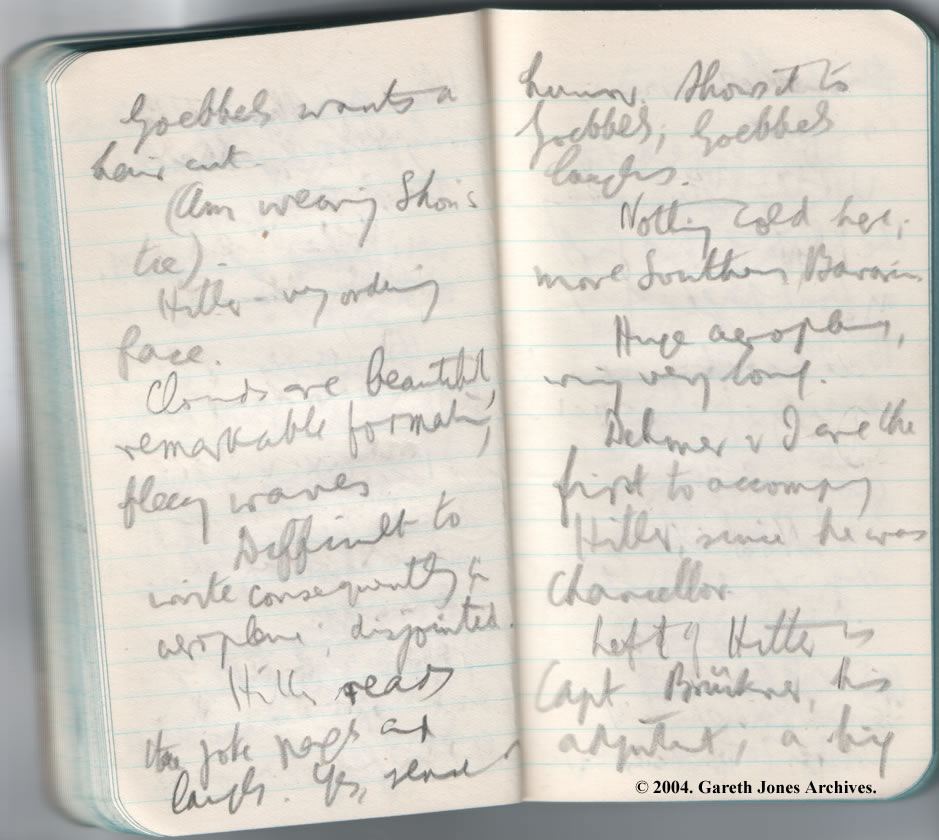 Goebbels wants a
hair cut.
(Am wearing Shôn's
tie).
Hitler - very ordinary
face.
Clouds are beautiful,
remarkable formation,
fleecy waves
Difficult to
write consequently in
aeroplane; disjointed.
Hitler reads
the joke pages and
laughs. Yes, sense of
humour. Shows it to
Goebbels; Goebbels
laughs.
Nothing cold here;
more Southern Bavarian.
Huge aeroplane,
wing very long.
Delmer & I are the
first to accompany
Hitler, since he was
Chancellor.
Left of Hitler is
Capt. Brückner, his
adjutant; a big
© 2004. Gareth Jones Archives.